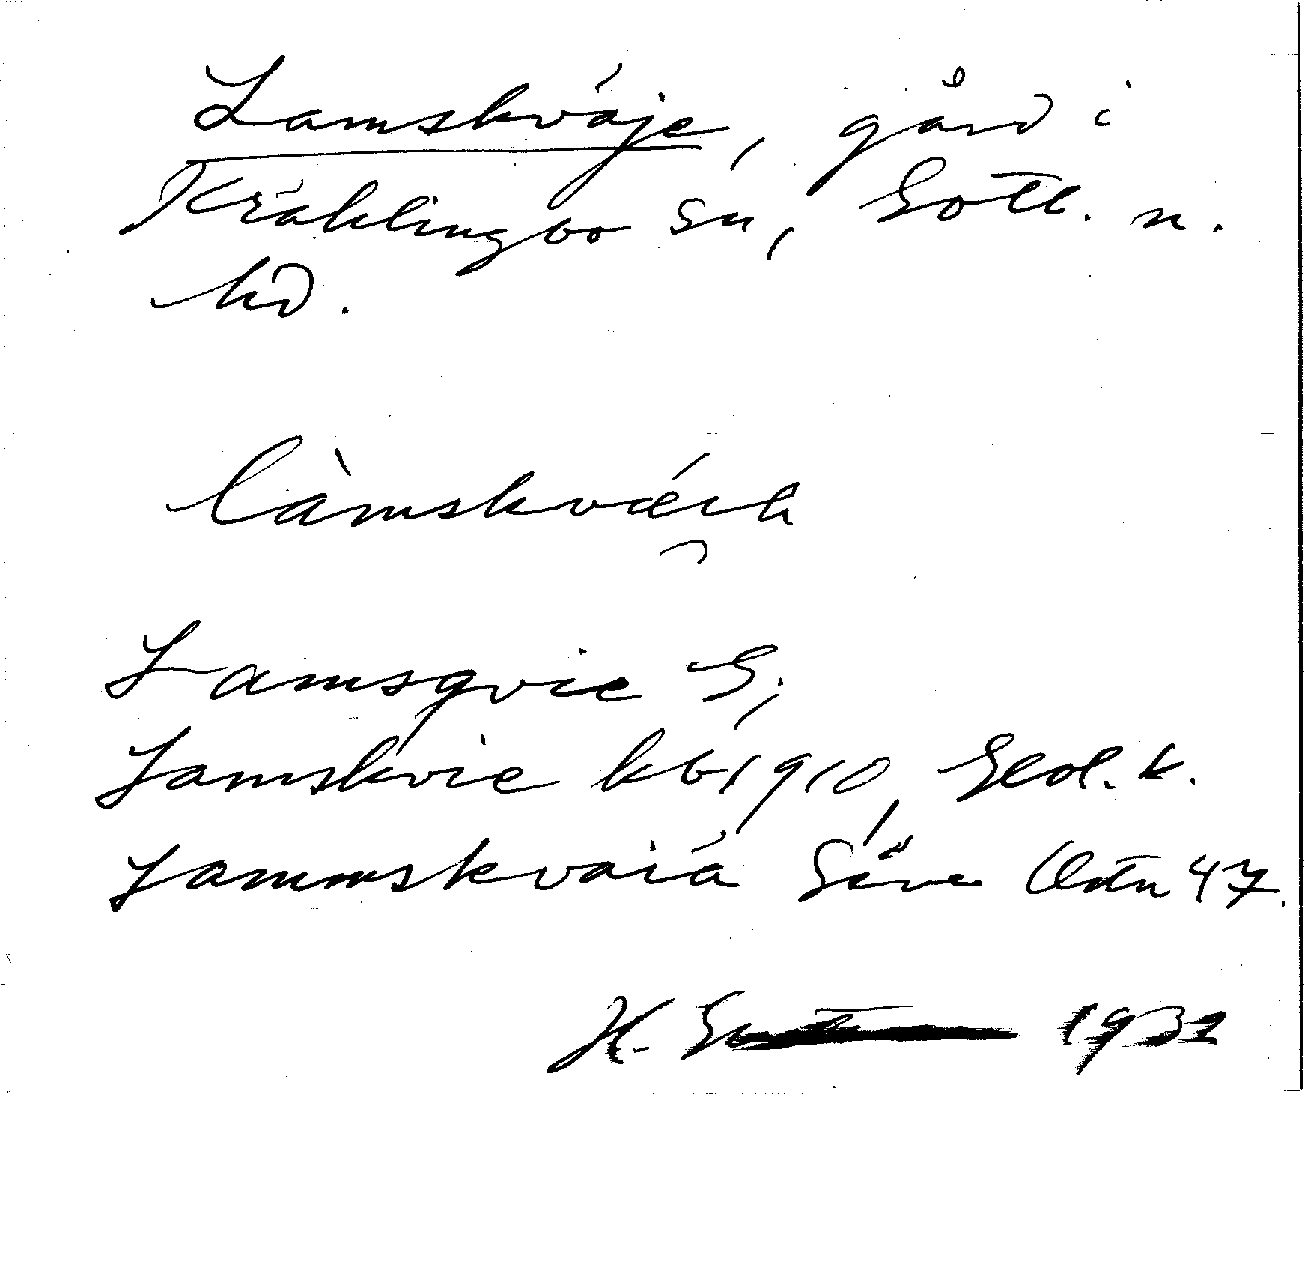 Lamskväje, gård i
Kräklingbo sn, Gotl. n.
hd.
làmskvä́ıa
Lamsqvie G;
Lamskvie kb 1910, Geol. k.
Lammskvaiá Säve Ortn 47.
H. 1932